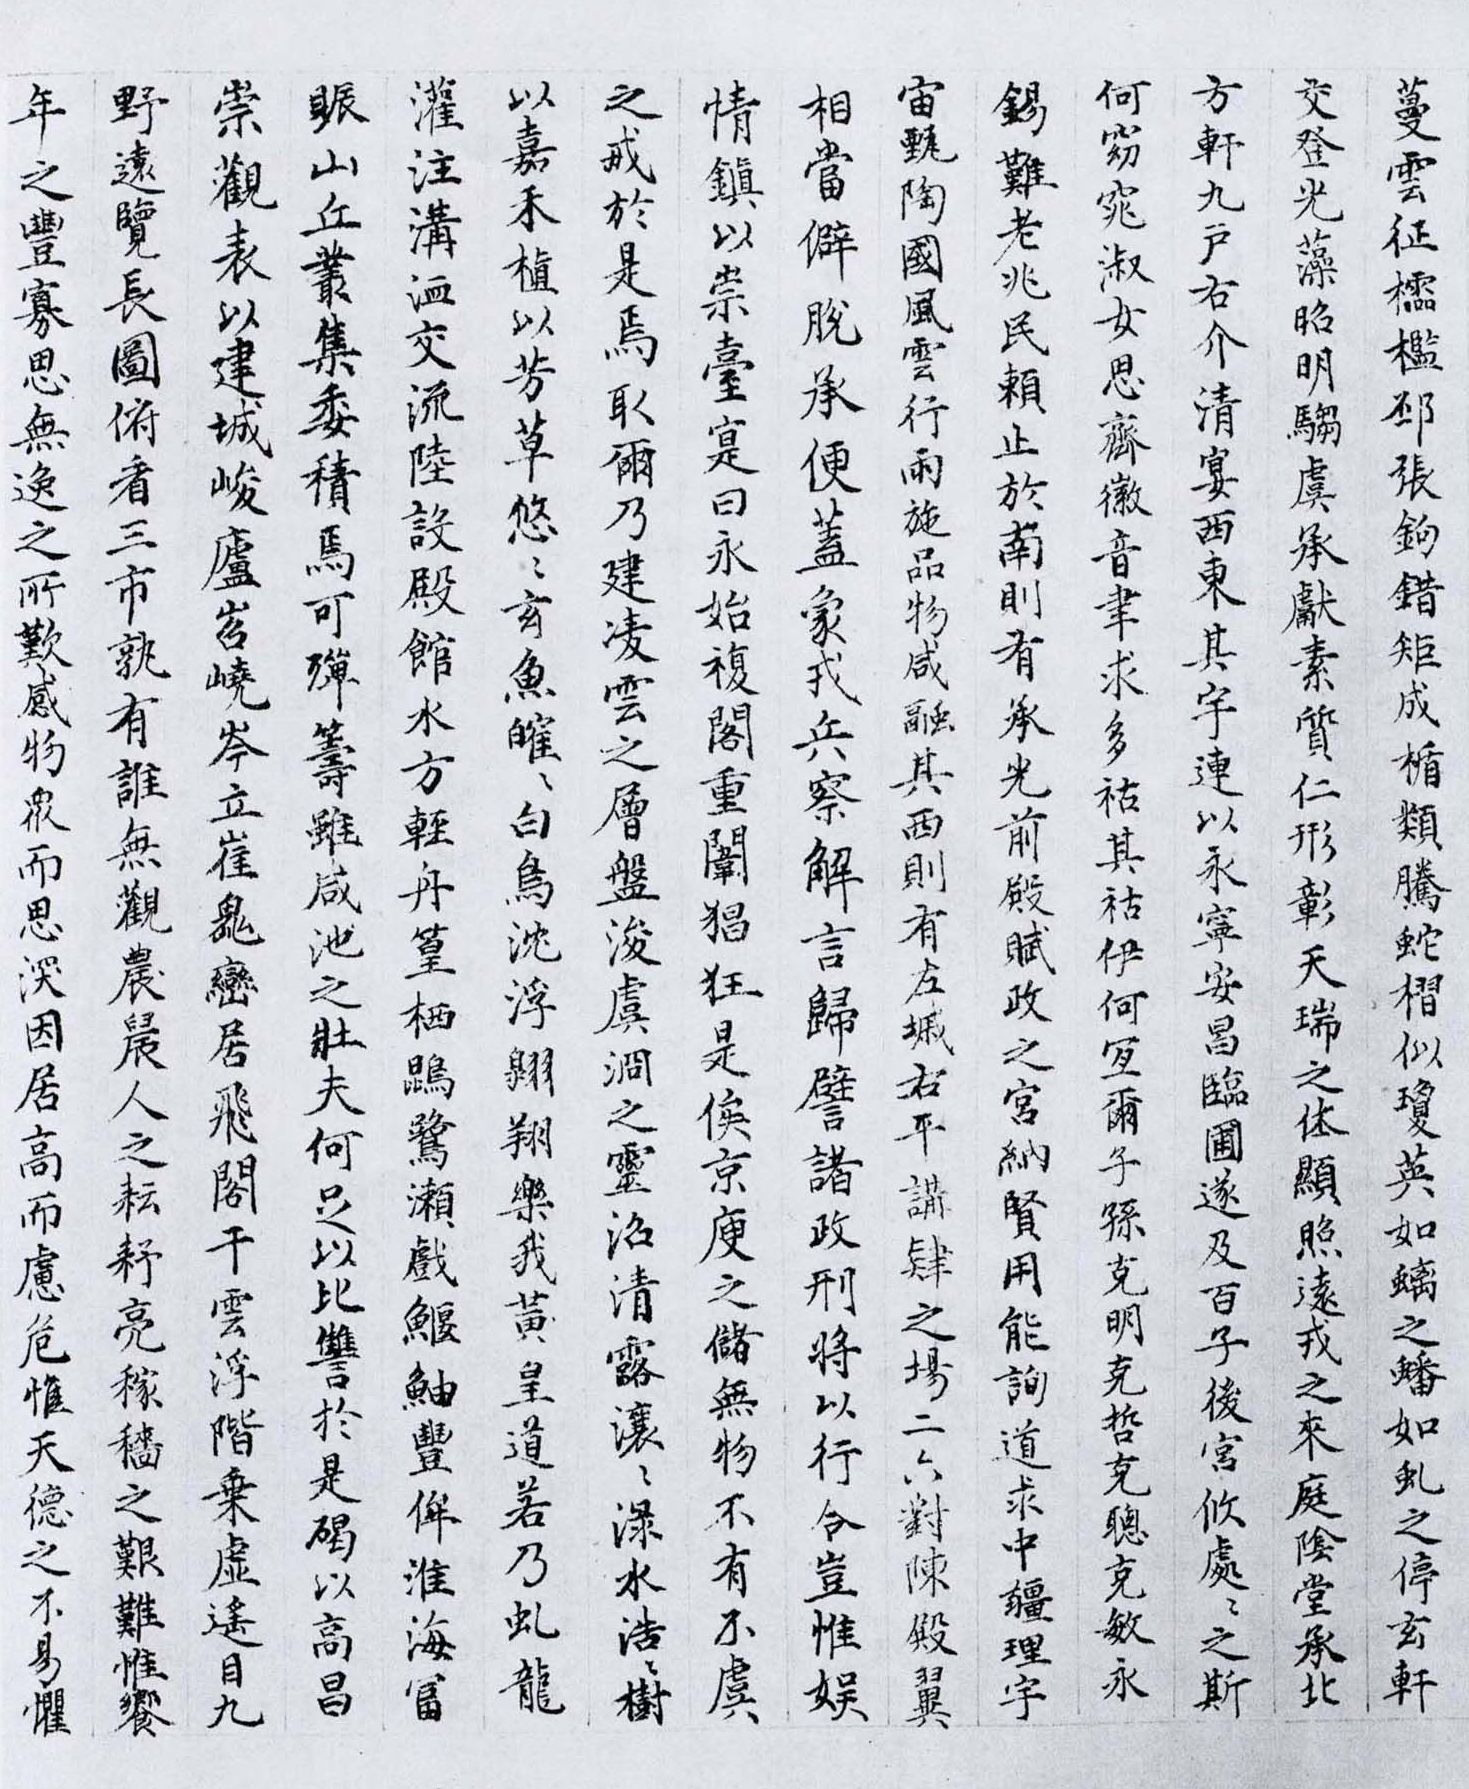 蔓雲征櫺檻邳張鉤錯矩成楯類騰蛇槢似瓊英如螭之蟠如虬之停玄軒
交登光藻昭明騶虞承獻素質仁形彰天瑞之休顯照遠戎之來庭陰堂承北
方軒九戶右介清宴西東其宇連以永寧安昌臨圃遂及百子後宮攸處〻之斯
何窈窕淑女思齊徽音聿求多祜其祜伊何宜爾子孫克明克哲克聰克敏永
錫難老兆民賴止於南則有承光前殿賦政之宮納賢用能詢道求中疆理宇
宙甄陶國風雲行雨施品物咸融其西則有左墄右平講肄之場二六對陳殿翼
相當僻脫承便蓋象戎兵察解言歸譬諸政刑將以行令豈惟娱
情鎮以崇臺寔曰永始複閣重闈猖狂是俟京庾之儲無物不有不虞
之戒於是焉取爾乃建凌雲之層盤浚虞淵之靈沼清露瀼〻渌水浩〻樹
以嘉禾植以芳草悠〻玄魚皠〻白鳥沈浮翱翔樂我黃皇道若乃虬龍
灌注溝洫交流陸設殿館水方輕舟篁栖鵾鷺瀨戲鰋鮋豐侔淮海富
賑山丘叢集委積焉可殫籌雖咸池之壯夫何足以比讐於是碣以高昌
崇觀表以建城峻廬岧嶢岑立崔嵬巒居飛閣干雲浮階乗虛遙目九
野遠覽長圖俯看三市孰有誰無觀農晨人之耘耔亮稼穡之艱難惟饗
年之豐寡思無逸之所歎感物衆而思深因居高而慮危惟天德之不易懼